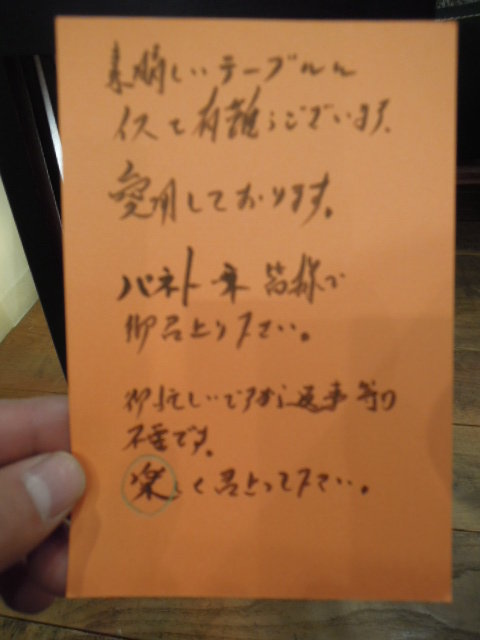 素晴しいテーブルと
イスを有難うございます。
愛用しております。
パネトーネ 皆様で
御召上り下さい。
御忙しいですから返事等の
不要です。
楽しく召上って下さい。